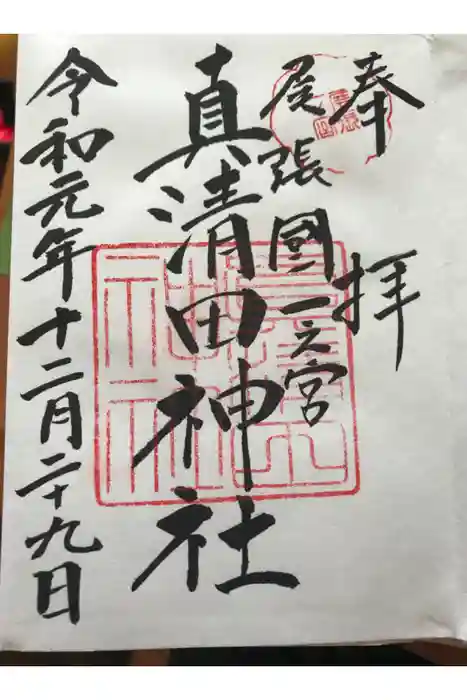 奉拝
尾張國一之宮
真清田神社
令和元年十二月二十九日